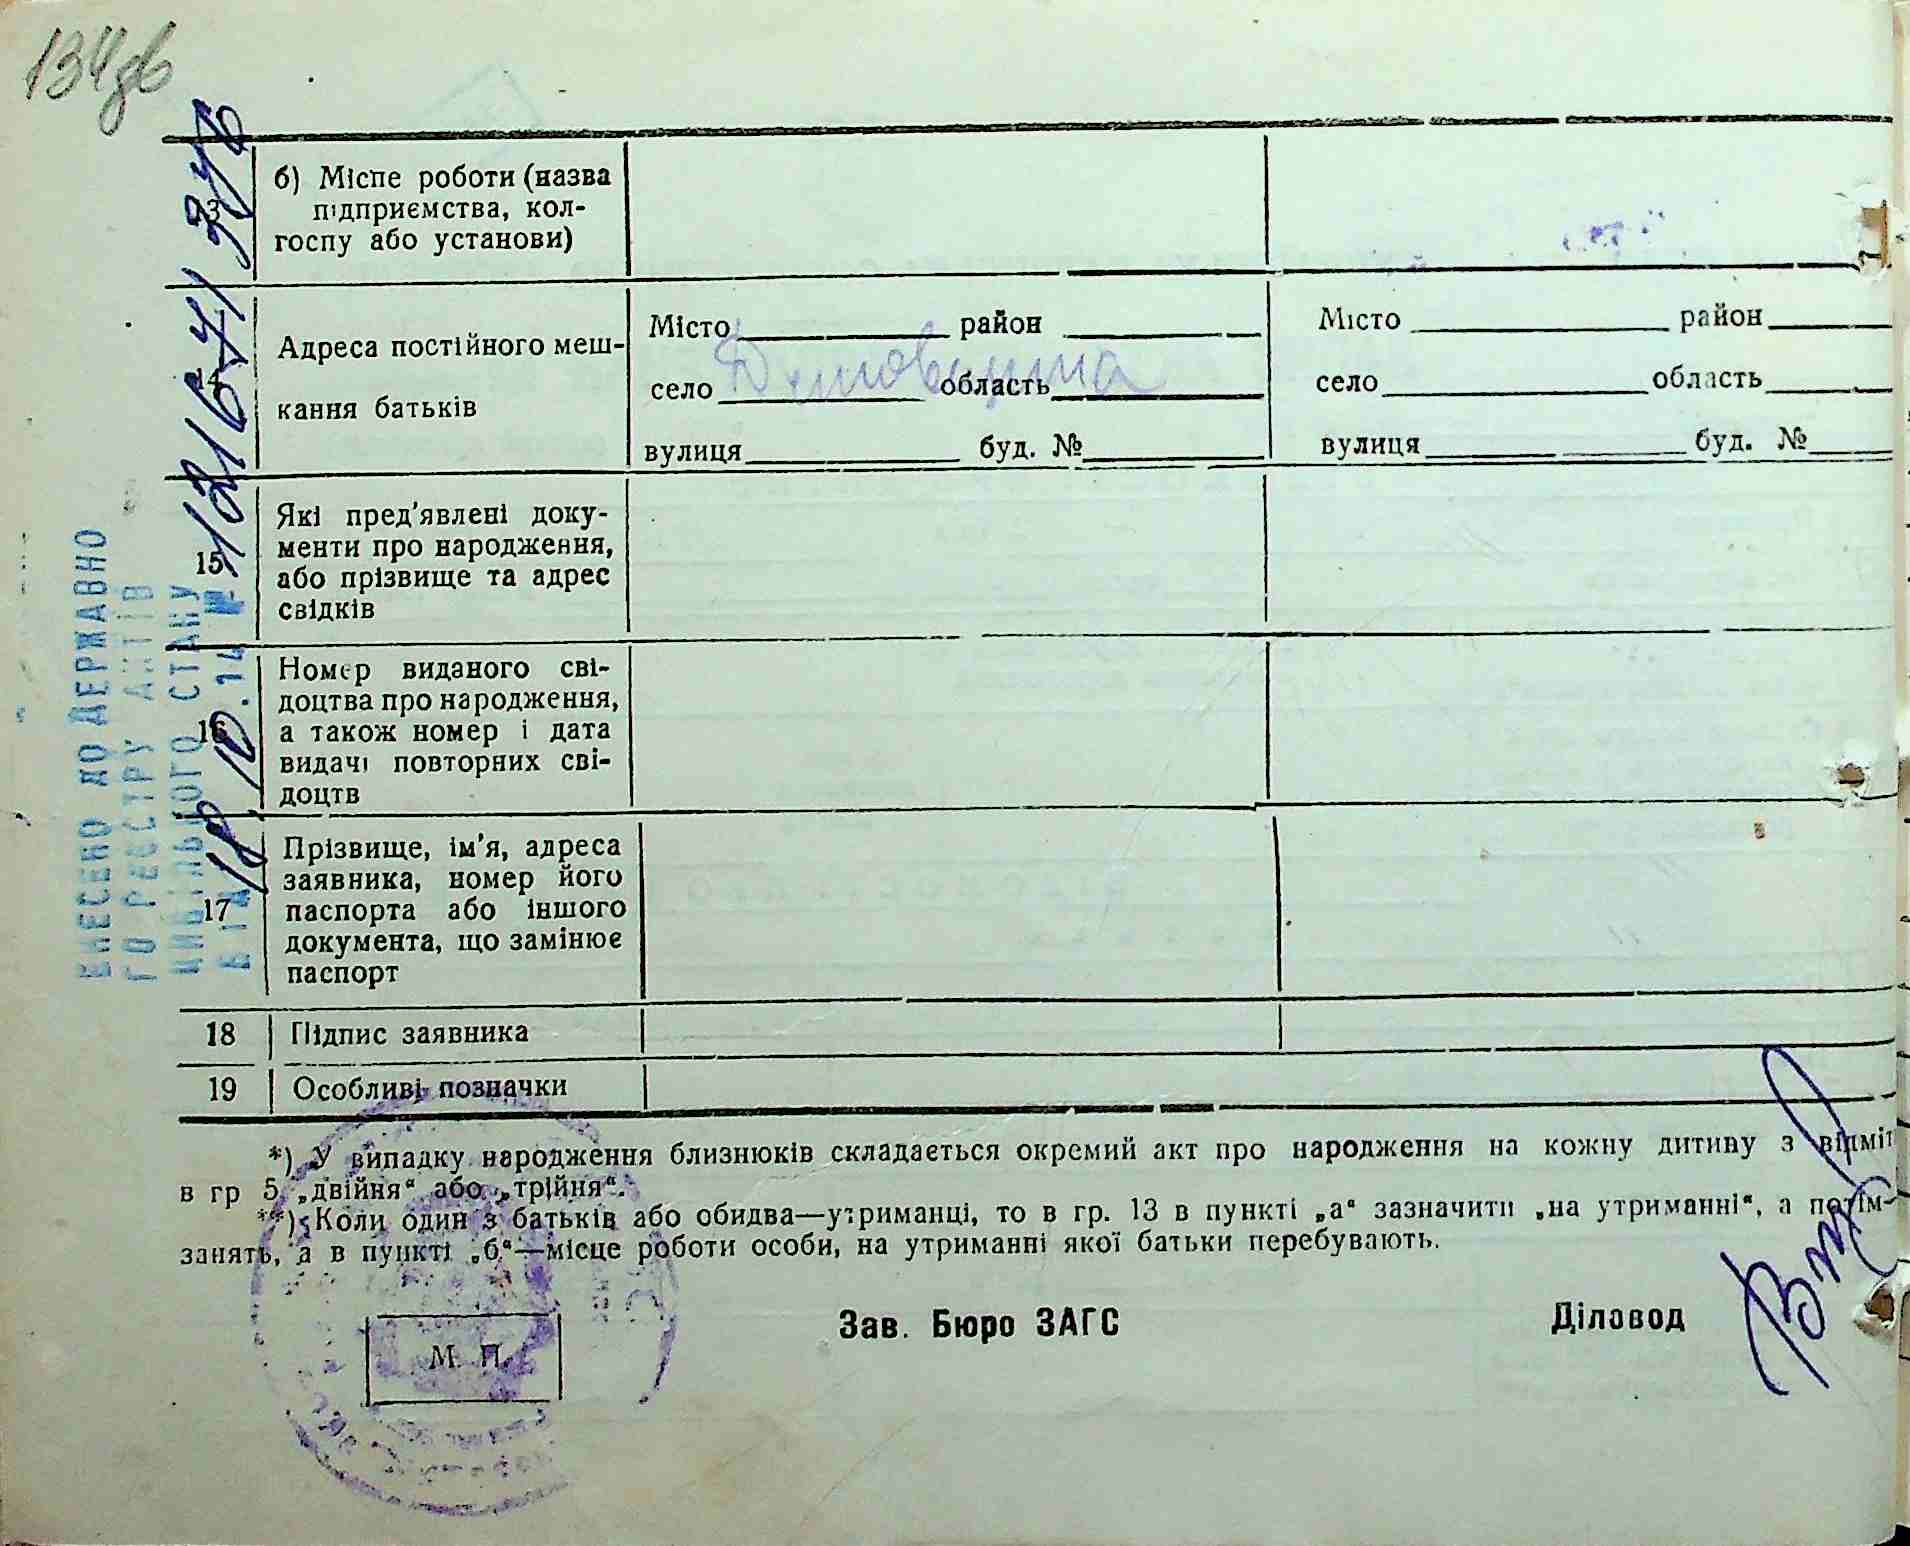 134зв
б) Місце роботи (назва
підприємства, кол-
госпу або установи)
14
Адреса постійного меш-
кання батьків
Місто район
село область
вулиця буд. №
Місто район
село область
вулиця буд. №
15
Які пред'явлені доку-
менти про народження,
або прізвище та адрес
свідків
16
Номер виданого сві-
доцтва про народження,
а також номер і дата
видачі повторних сві-
доцтв
17
Прізвище, ім'я, адреса
заявника, номер його
паспорта або іншого
документа, що замінює
паспорт
18 Підпис заявника
19 Особливі позначки
*) У випадку народження близнюків складається окремий акт про народження на кожну дитину з відміт
в гр 5 „двійня“ або „трійня“.
**) Коли один з батьків або обидва—утриманці, то в гр. 13 в пункті „а“ зазначити „на утриманні“, а потім-
занять, а в пункті „б“—місце роботи особи, на утриманні якої батьки перебувають.
М. П.
Зав. Бюро ЗАГС
Діловод
ВНЕСЕНО ДО ДЕРЖАВНО
ГО РЕЄСТРУ АКТІВ
ЦИВІЛЬНОГО СТАНУ
18 10.14 №